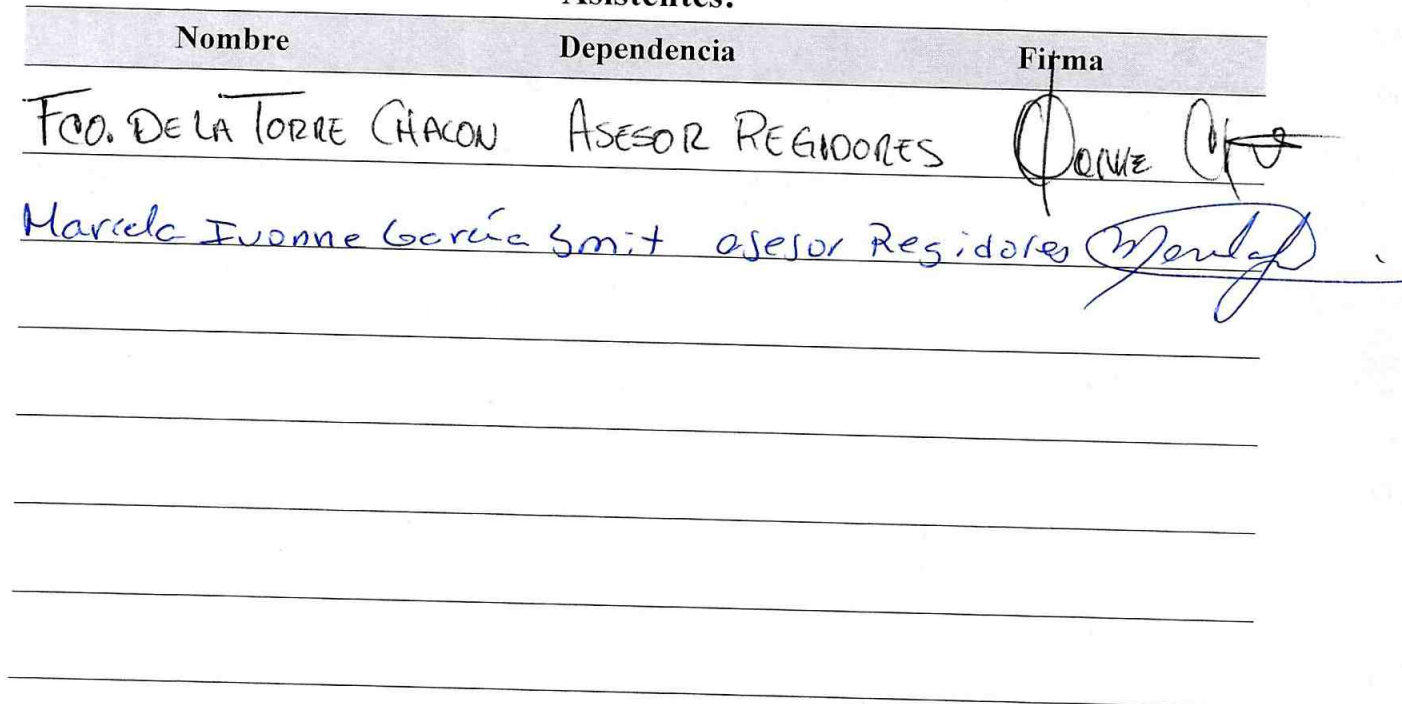 Asistentes:
Nombre Dependencia Firma
FCO. DE LA TORRE CHACON ASESOR REGIDORES
Marcela Ivonne García Smit asesor Regidores